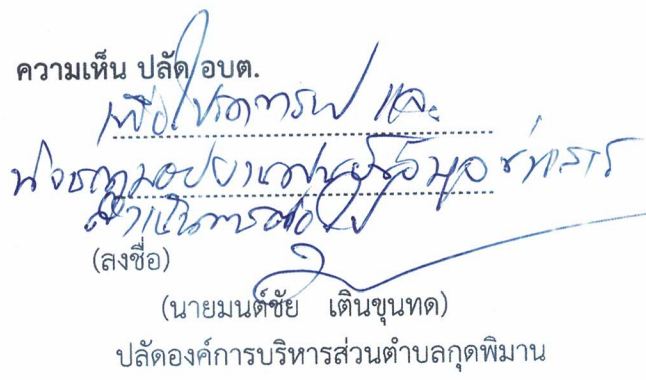 ความเห็น ปลัด อบต.
เพื่อโปรดทราบ และ
ดำเนินการต่อไป
(ลงชื่อ)
(นายมนต์ชัย เตินขุนทด)
ปลัดองค์การบริหารส่วนตำบลกุดพิมาน